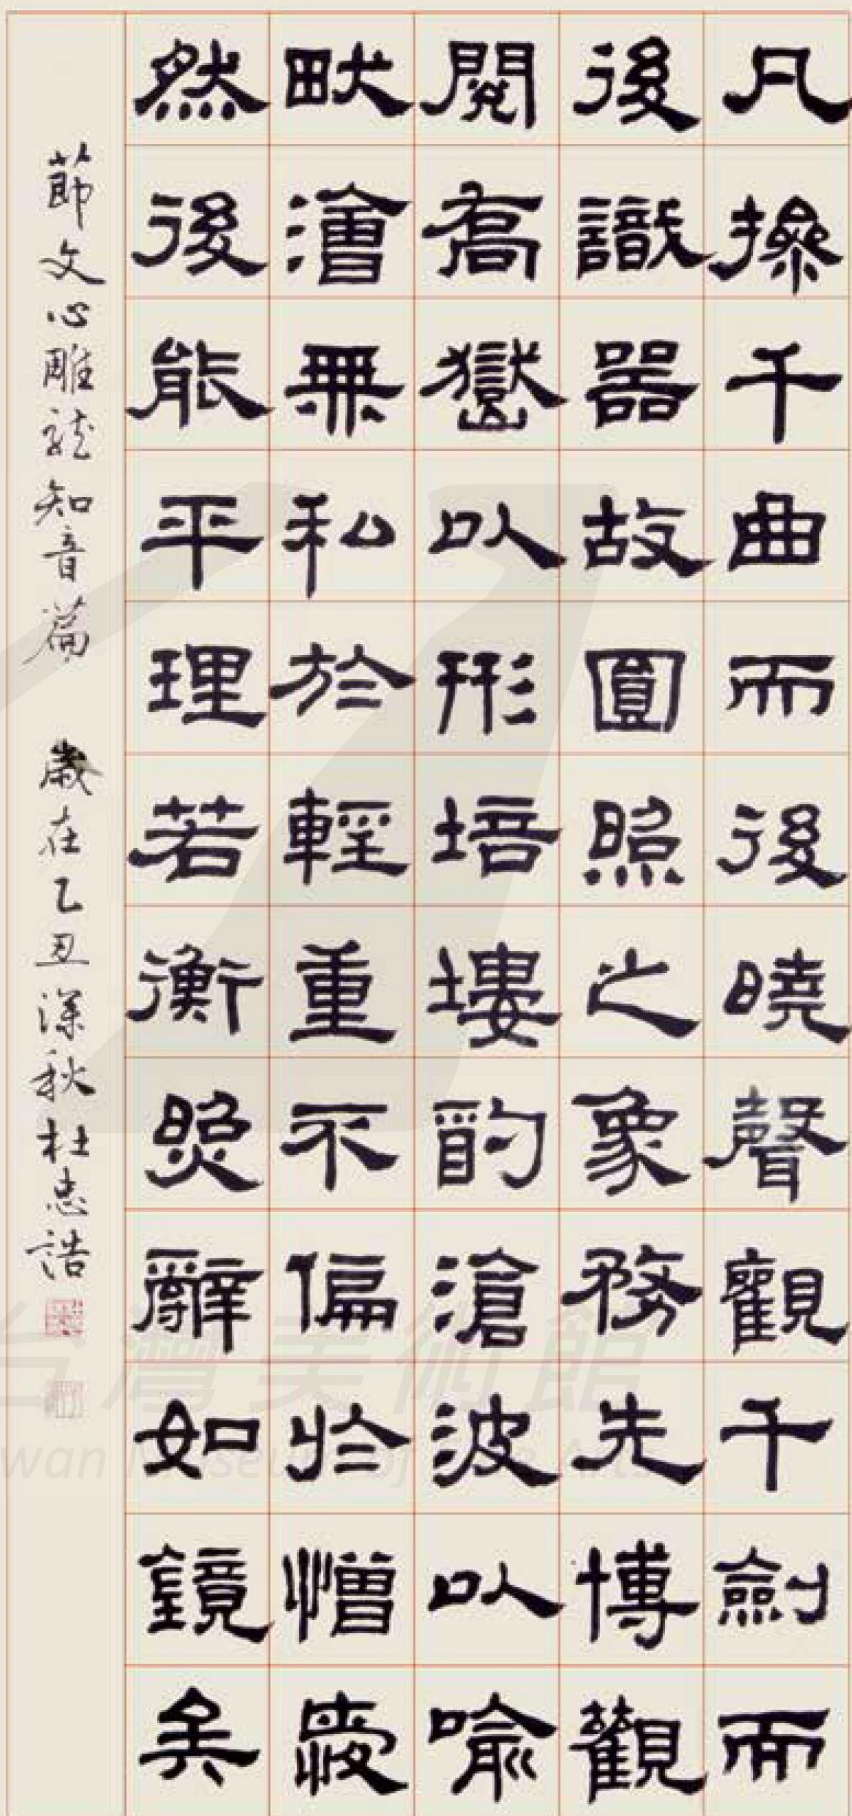 凡操千曲而後曉聲觀千劍而
後識器故圓照之象務先博觀
閱喬嶽以形培塿酌滄波以喻
畎澮無私於輕重不偏於憎愛
然後能平理若衡照辭如鏡矣
節文心雕龍知音篇 歲在乙丑深秋杜忠誥
台灣美術館
wan Museum of Fine Arts